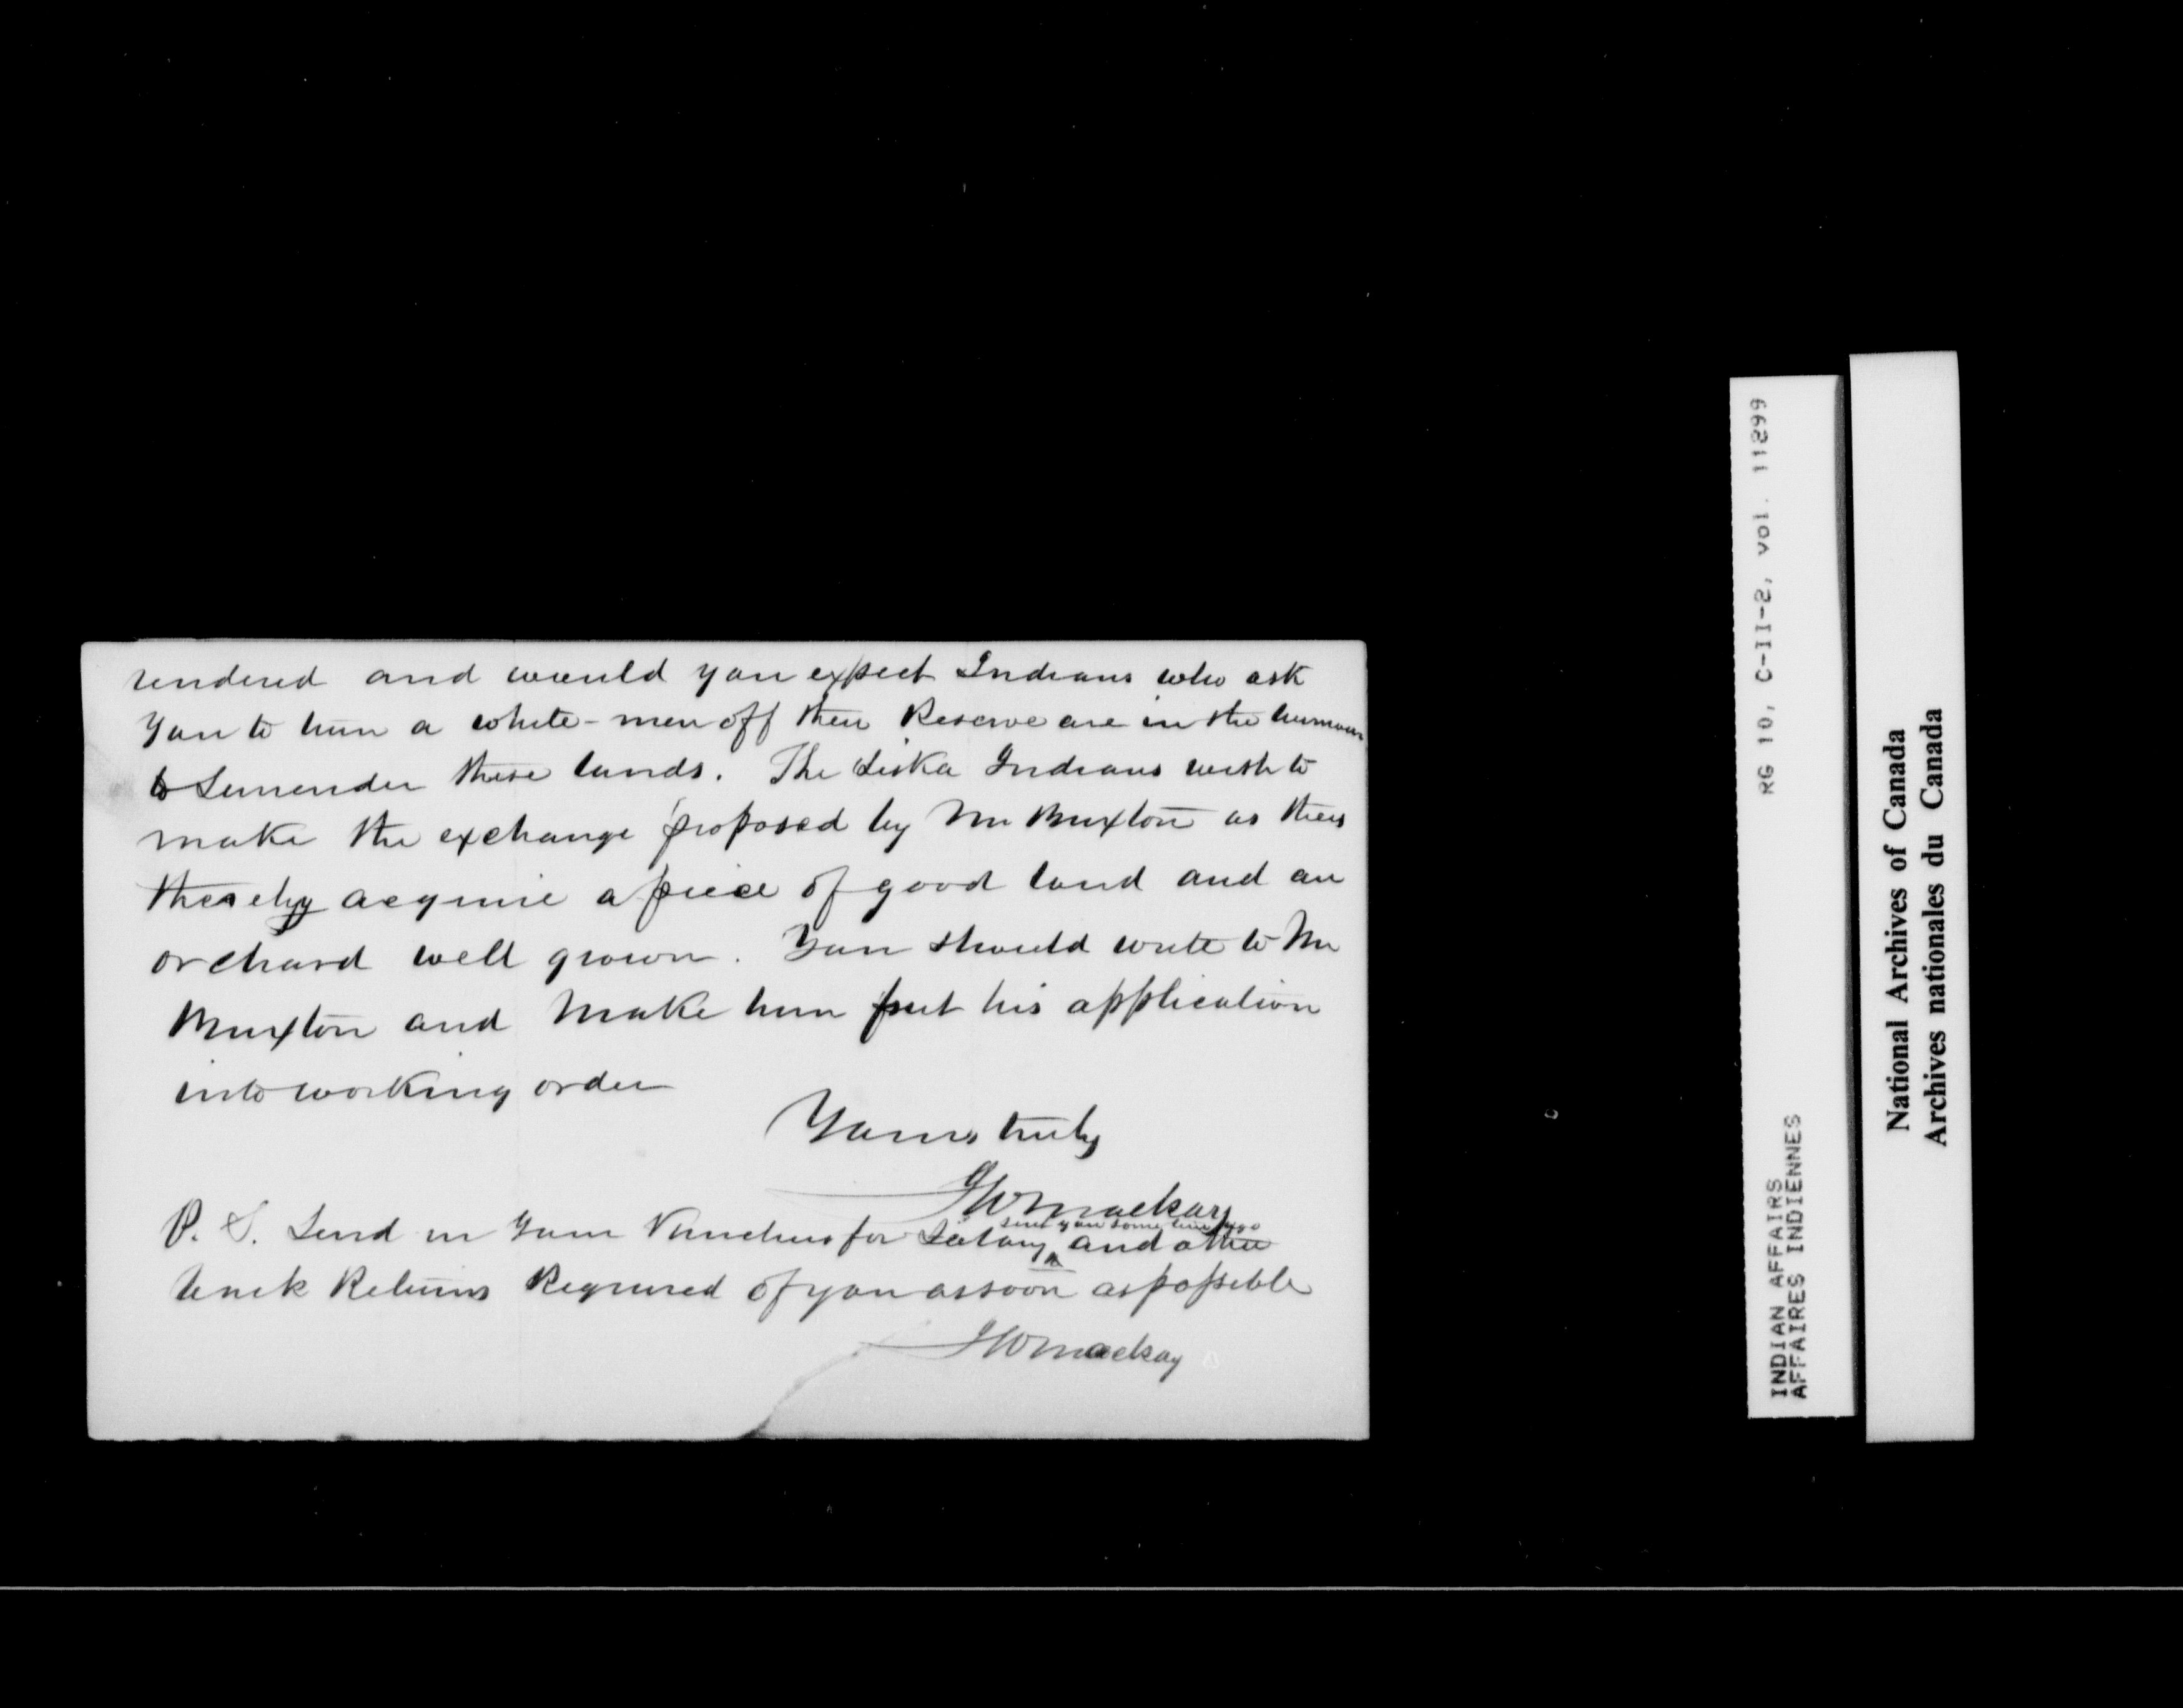 rendered and would you expect Indians who ask
you to turn a white-men off their Reserve are in the humour
to Surrender these lands. The Siska Indians wish to
make the exchange proposed by Mr Buxton as they
thereby acquire a piece of good land and an
orchard well grown. You should write to Mr
Buxton and Make him put his application
into working order
Yours truly
JWMackay
sent you some time ago
P. S. Send in your Vouchers for Salary and other
back Returns Required of you as soon as possible
JWMackay
RG 10, C-II-2, vol. 11299
INDIAN AFFAIRS
AFFAIRES INDIENNES
National Archives of Canada
Archives nationales du Canada